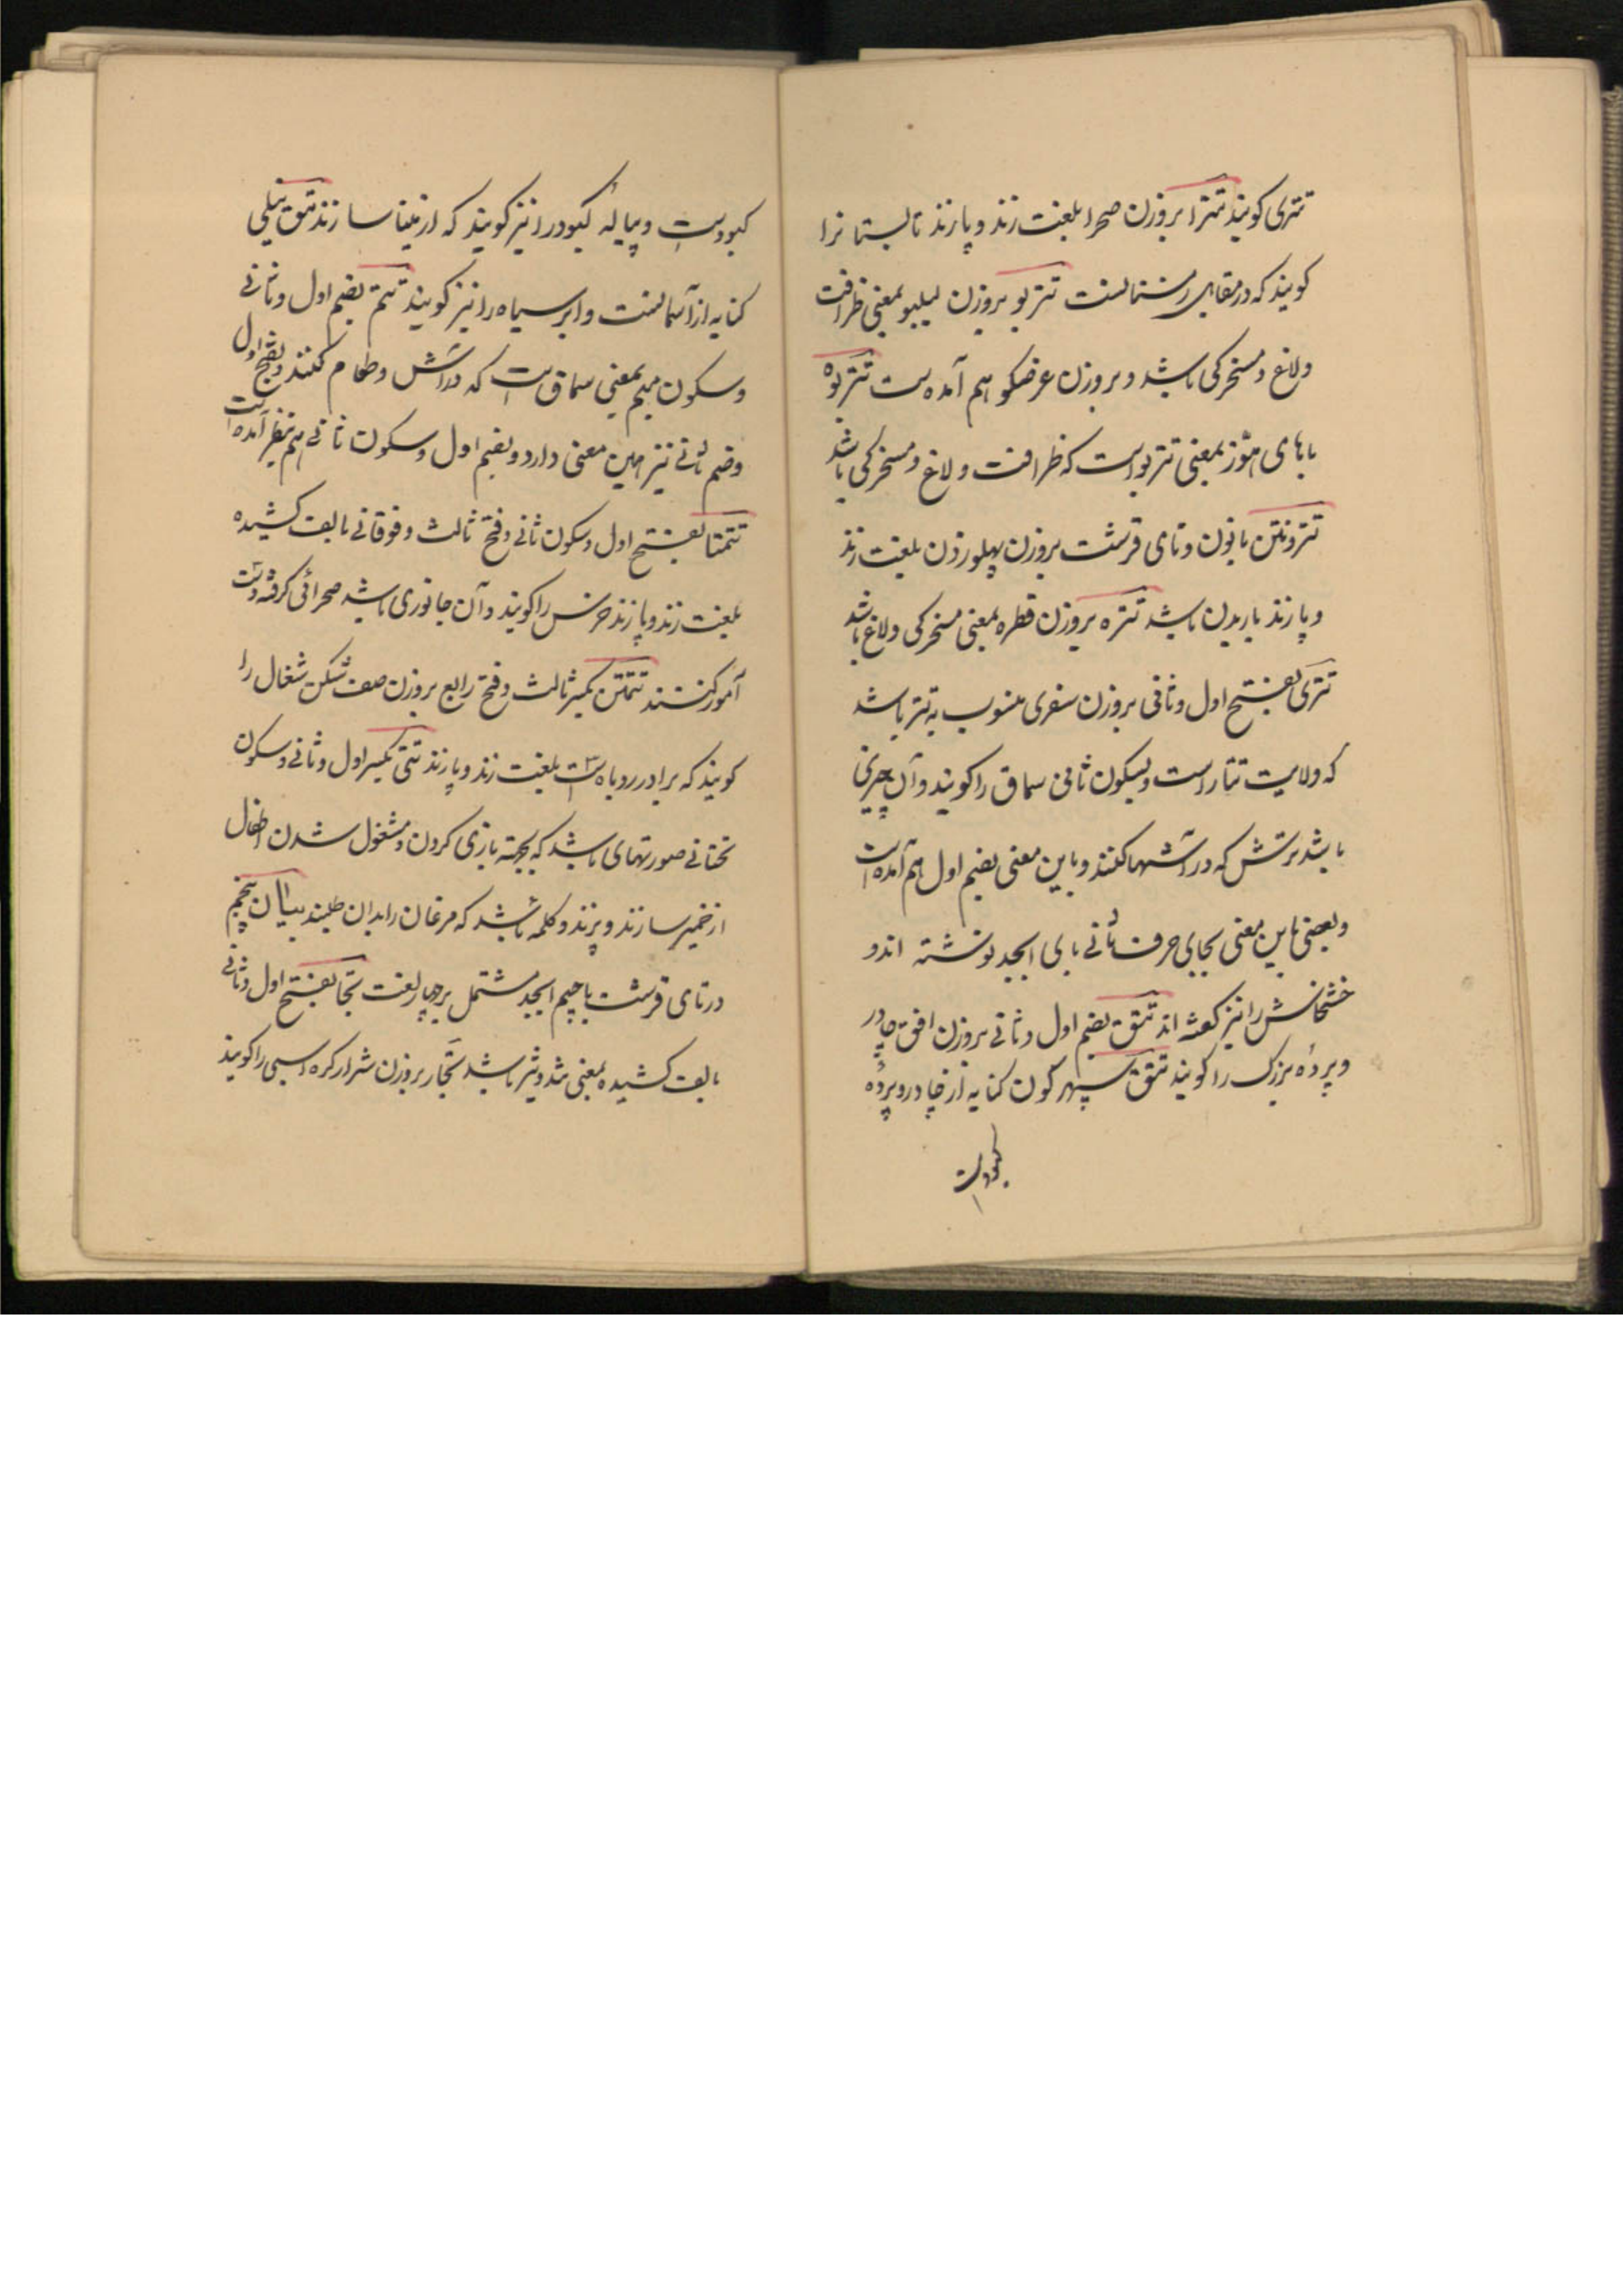 تتری کویند تترا بروزن صحرا بلغت زند و پازند تابستانرا
کویند که در مقابل زمستانست تتربو بروزن لبلبو بمعنی ظرافت
و لاغ و مسخرکی باشد و بروزن عرضکو هم آمده است تتربوه
با های هوّز بمعنی تتربو است که ظرافت و لاغ و مسخرکی باشد
تترونتن با نون و تای قرشت بروزن پهلو زدن بلغت زند
و پازند باریدن باشد تتره بروزن قطره بمعنی مسخرکی و لاغ باشد
تتری بفتح اول و ثانی بروزن سفری منسوب به تتر باشد
که ولایت تتار است و بسکون ثانی سماق را کویند و آن چیزی
باشد ترش که در آشها کنند و باین معنی بضم اول هم آمده است
و بعضی باین معنی بجای حرف ثانی بای ابجد نوشته اند و
خشخاش را نیز کفته اند تتق بضم اول و ثانی بروزن افق چادر
و پردهٔ بزرک را کویند تتق سپهر کون کنایه از چادر و پردهٔ
کبود است
کبود است و پیالهٔ کبود را نیز کویند که از مینا سازند تتق نیلی
کنایه از آسمانست و ابر سیاه را نیز کویند تتم بضم اول و ثانی
و سکون میم بمعنی سماق است که در آش و طعام کنند و بفتح اول
و ضم ثانی نیز همین معنی دارد و بضم اول و سکون ثانی هم بنظر آمده است
تتمتا بفتح اول و سکون ثانی و فتح ثالث و فوقانی بالف کشیده
بلغت زند و پازند خرس را کویند و آن جانوری باشد صحرائی کرفته و دست
آموز کنند تتمتن بکسر ثالث و فتح رابع بروزن صف شکن شغال را
کویند که برادر روباه است بلغت زند و پازند تتی بکسر اول و ثانی و سکون
تحتانی صورتهای باشد که بجهته بازی کردن و مشغول شدن اطفال
از خمیر سازند و پزند و کلمه باشد که مرغان را بدان طلبند بیان پنجم
در تای قرشت با جیم ابجد مشتمل بر چهار لغت تجا بفتح اول و ثانی
بالف کشیده بمعنی تند و تیز باشد تجار بروزن شرار کره اسبی را کویند